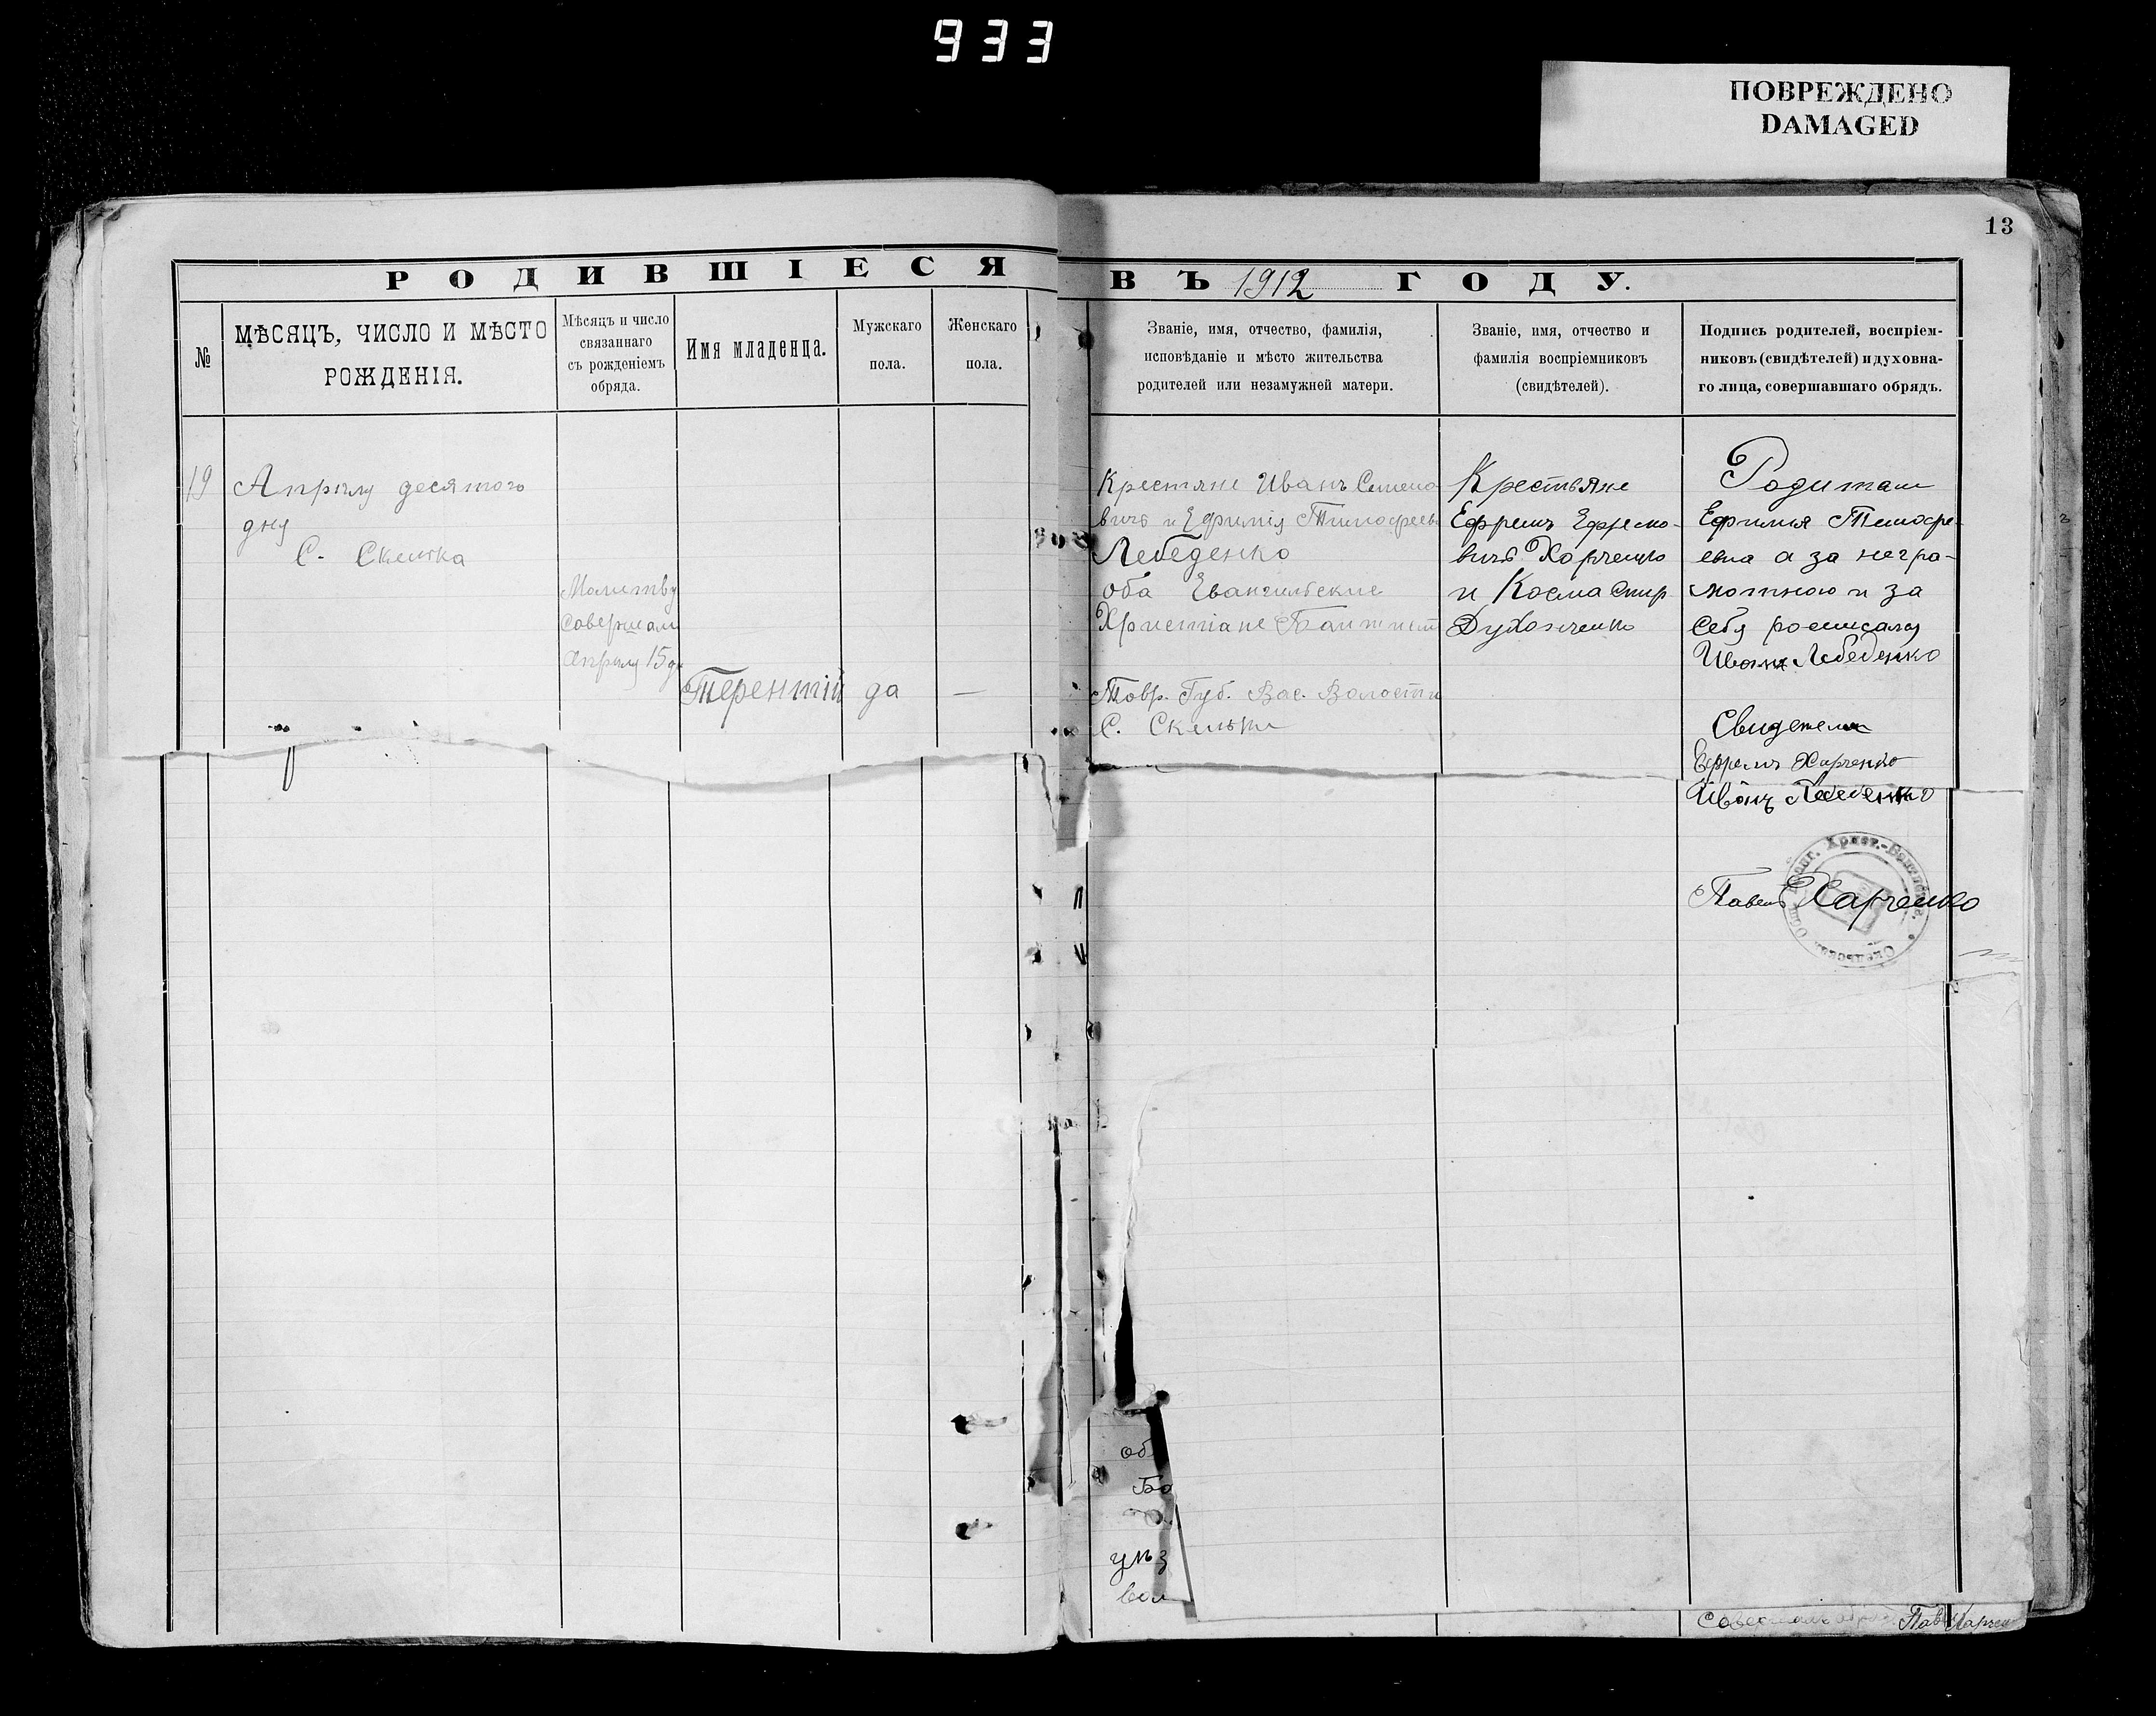 933
ПОВРЕЖДЕНО
DAMAGED
13
РОДИВШІЕСЯ ВЪ 1912 ГОДУ.
№
МѢСЯЦЪ, ЧИСЛО И МѢСТО
РОЖДЕНІЯ.
Мѣсяцъ и число
связаннаго
съ рожденіемъ
обряда.
Имя младенца.
Мужскаго
пола.
Женскаго
пола.
Званіе, имя, отчество, фамилія,
исповѣданіе и мѣсто жительства
родителей или незамужней матери.
Званіе, имя, отчество и
фамилія воспріемниковъ
(свидѣтелей).
Подпись родителей, воспріем-
никовъ (свидѣтелей) и духовна-
го лица, совершавшаго обрядъ.
19
Апрѣлу десятого
дну
С. Скелька
Молитву
Совершали
Апрѣлу 15 д
Терентій
да
—
Крестяне Иванъ Семено
вичъ и Ефимія Тимофеевн
Лебеденко
оба Евангильские
Христіане Баптист
Товр. Губ. Вас. Волости
С. Скельки
Крестьяне
Ефремъ Ефремо-
вичъ Харченко
и Косма Спир
Духонченко
Родители
Ефимия Тимофе-
евна а за негра-
мотною и за
Себя росписалсу
Иванъ Лебеденко
Свидетели
Ефремъ Харченко
Иванъ Лебеденко
Павелъ Харченко
об
Ба
уѣз
вол
Павелъ Харчен